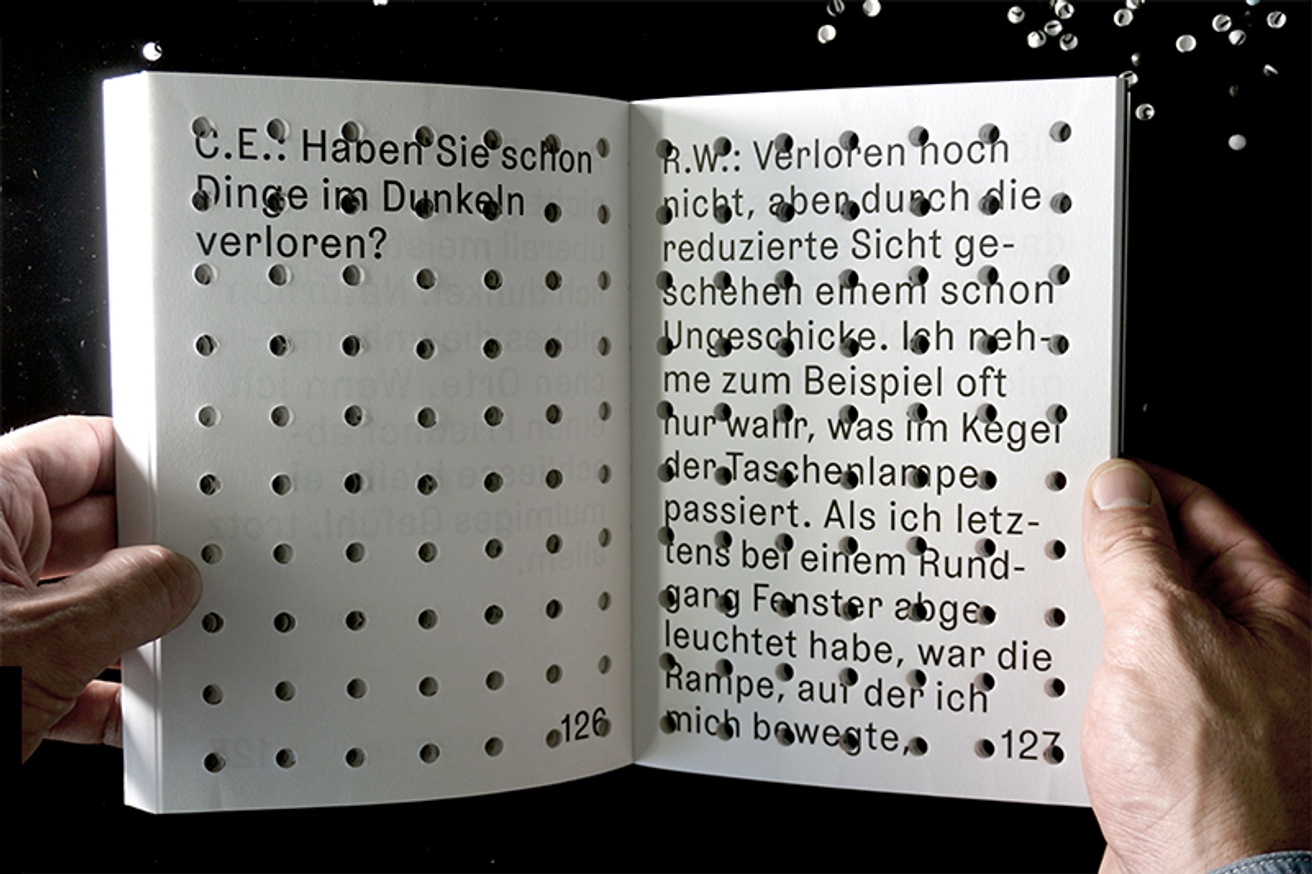 C.E.: Haben Sie schon
Dinge im Dunkeln
verloren?
126
R.W.: Verloren noch
nicht, aber durch die
reduzierte Sicht ge-
schehen einem schon
Ungeschicke. Ich neh-
me zum Beispiel oft
nur wahr, was im Kegel
der Taschenlampe
passiert. Als ich letz-
tens bei einem Rund-
gang Fenster abge-
leuchtet habe, war die
Rampe, auf der ich
mich bewegte,
127